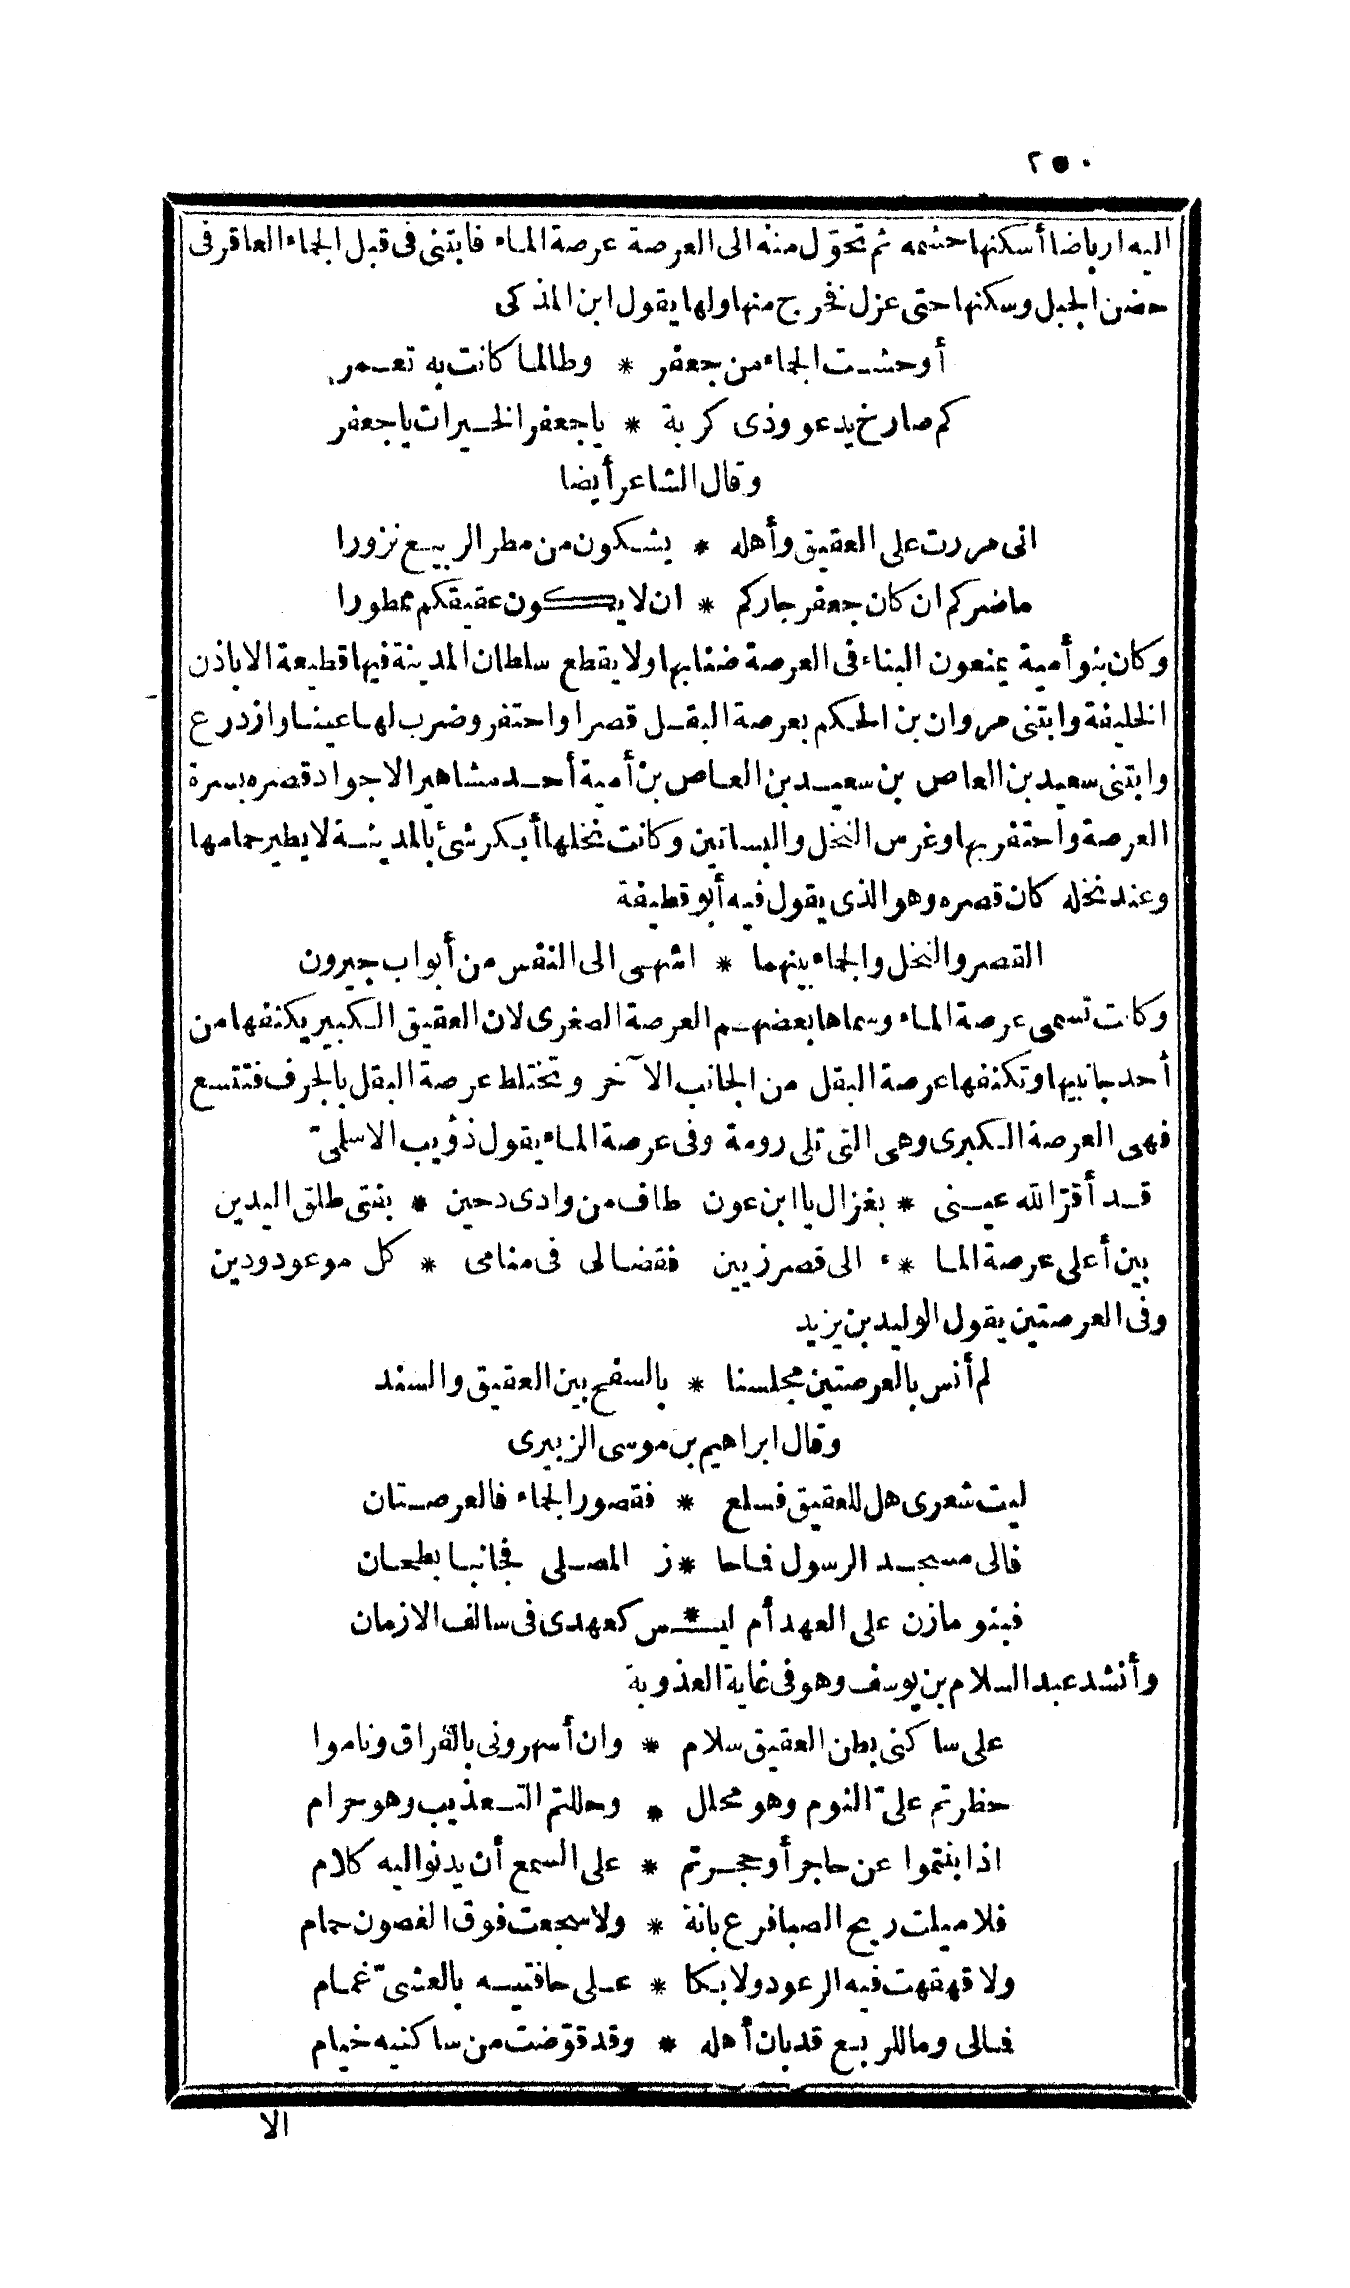 ٢٥٠
اليه ارباضا أسكنها حشمه ثم تحوّل منه الى العرصة عرصة الماء فابتنى فى قبل الجماء العاقر فى
حضن الجبل وسكنها حتى عزل فخرج منها ولها يقول ابن المذكى
أوحشت الجماء من جعفر * وطالما كانت به تعمر
كم صارخ يدعو وذى كربة * ياجعفر الخيرات ياجعفر
وقال الشاعر أيضا
انى مررت على العقيق وأهله * يشكون من مطر الربيع نزورا
ماضركم ان كان جعفر جاركم * ان لا يكون عقيقكم ممطورا
وكان بنو أمية يمنعون البناء فى العرصة ضنا بها ولا يقطع سلطان المدينة فيها قطيعة الا باذن
الخليفة وابتنى مروان بن الحكم بعرصة البقل قصرا واحتفر وضرب لها عينا وازدرع
وابتنى سعيد بن العاص بن سعيد بن العاص بن أمية أحد مشاهير الاجواد قصره بسرة
العرصة واحتفر بها وغرس النخل والبساتين وكانت نخلها أبكر شئ بالمدينة لا يطير حمامها
وعند نخله كان قصره وهو الذى يقول فيه أبو قطيفة
القصر والنخل والجماء بينهما * اشهى الى النفس من أبواب جيرون
وكانت تسمى عرصة الماء وسماها بعضهم العرصة الصغرى لان العقيق الكبير يكنفها من
أحد جانبيها وتكنفها عرصة البقل من الجانب الآخر وتختلط عرصة البقل بالجرف فتتسع
فهى العرصة الكبرى وهى التى تلى رومة وفى عرصة الماء يقول ذؤيب الاسلمىّ
قد أقرّ الله عينى * بغزال يا ابن عون طاف من وادى دحين * بفتى طلق اليدين
بين أعلى عرصة الما * ء الى قصر زبين فقضا لى فى منامى * كل موعود ودين
وفى العرصتين يقول الوليد بن يزيد
لم أنس بالعرصتين مجلسنا * بالسفح بين العقيق والسند
وقال ابراهيم بن موسى الزبيرى
ليت شعرى هل للعقيق فسلع * فقصور الجماء فالعرصتان
فالى مسجد الرسول فاحا * ز المصلى فجانبا بطحان
فبنو مازن على العهد أم ليـ * ـس كعهدى فى سالف الازمان
وأنشد عبد السلام بن يوسف وهو فى غاية العذوبة
على ساكنى بطن العقيق سلام * وان أسهرونى بالفراق وناموا
حظرتم علىّ النوم وهو محلل * وحللتم التعذيب وهو حرام
اذا بنتموا عن حاجر أو حجرتم * على السمع أن يدنو اليه كلام
فلا ميلت ريح الصبا فرع بانة * ولا سجعت فوق الغصون حمام
ولا قهقهت فيه الرعود ولا بكا * على حافتيه بالعشىّ غمام
فالى وما للربع قد بان أهله * وقد قوّضت من ساكنيه خيام
الا